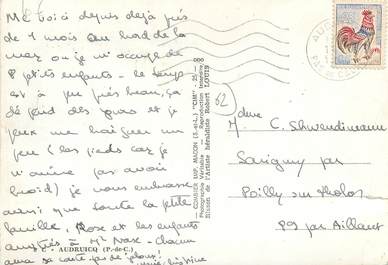 Me voici depuis déjà près
de 1 mois au bord de la
mer où je m'occupe de
8 petits enfants - le temps
est à peu près beau, ça
dépend des jours et je
peux me baigner un
peu (les pieds car je
n'aime pas avoir
froid) je vous embrasse
ainsi que toute la petite
famille, Rose et les enfants
amitiés à Mr
chacun
sa carte pas de jaloux!
AUDRUICQ (P.-de-C.)
COMBIER IMP. MACON (S.-et-L.) "CIM"
Photographie Véritable - Reproduction Interdite
Blason de l'Artiste héraldiste Robert LOUIS
62
M. C. Schwendimann
Savigny par
Poilly sur Tholon
89 par Aillant